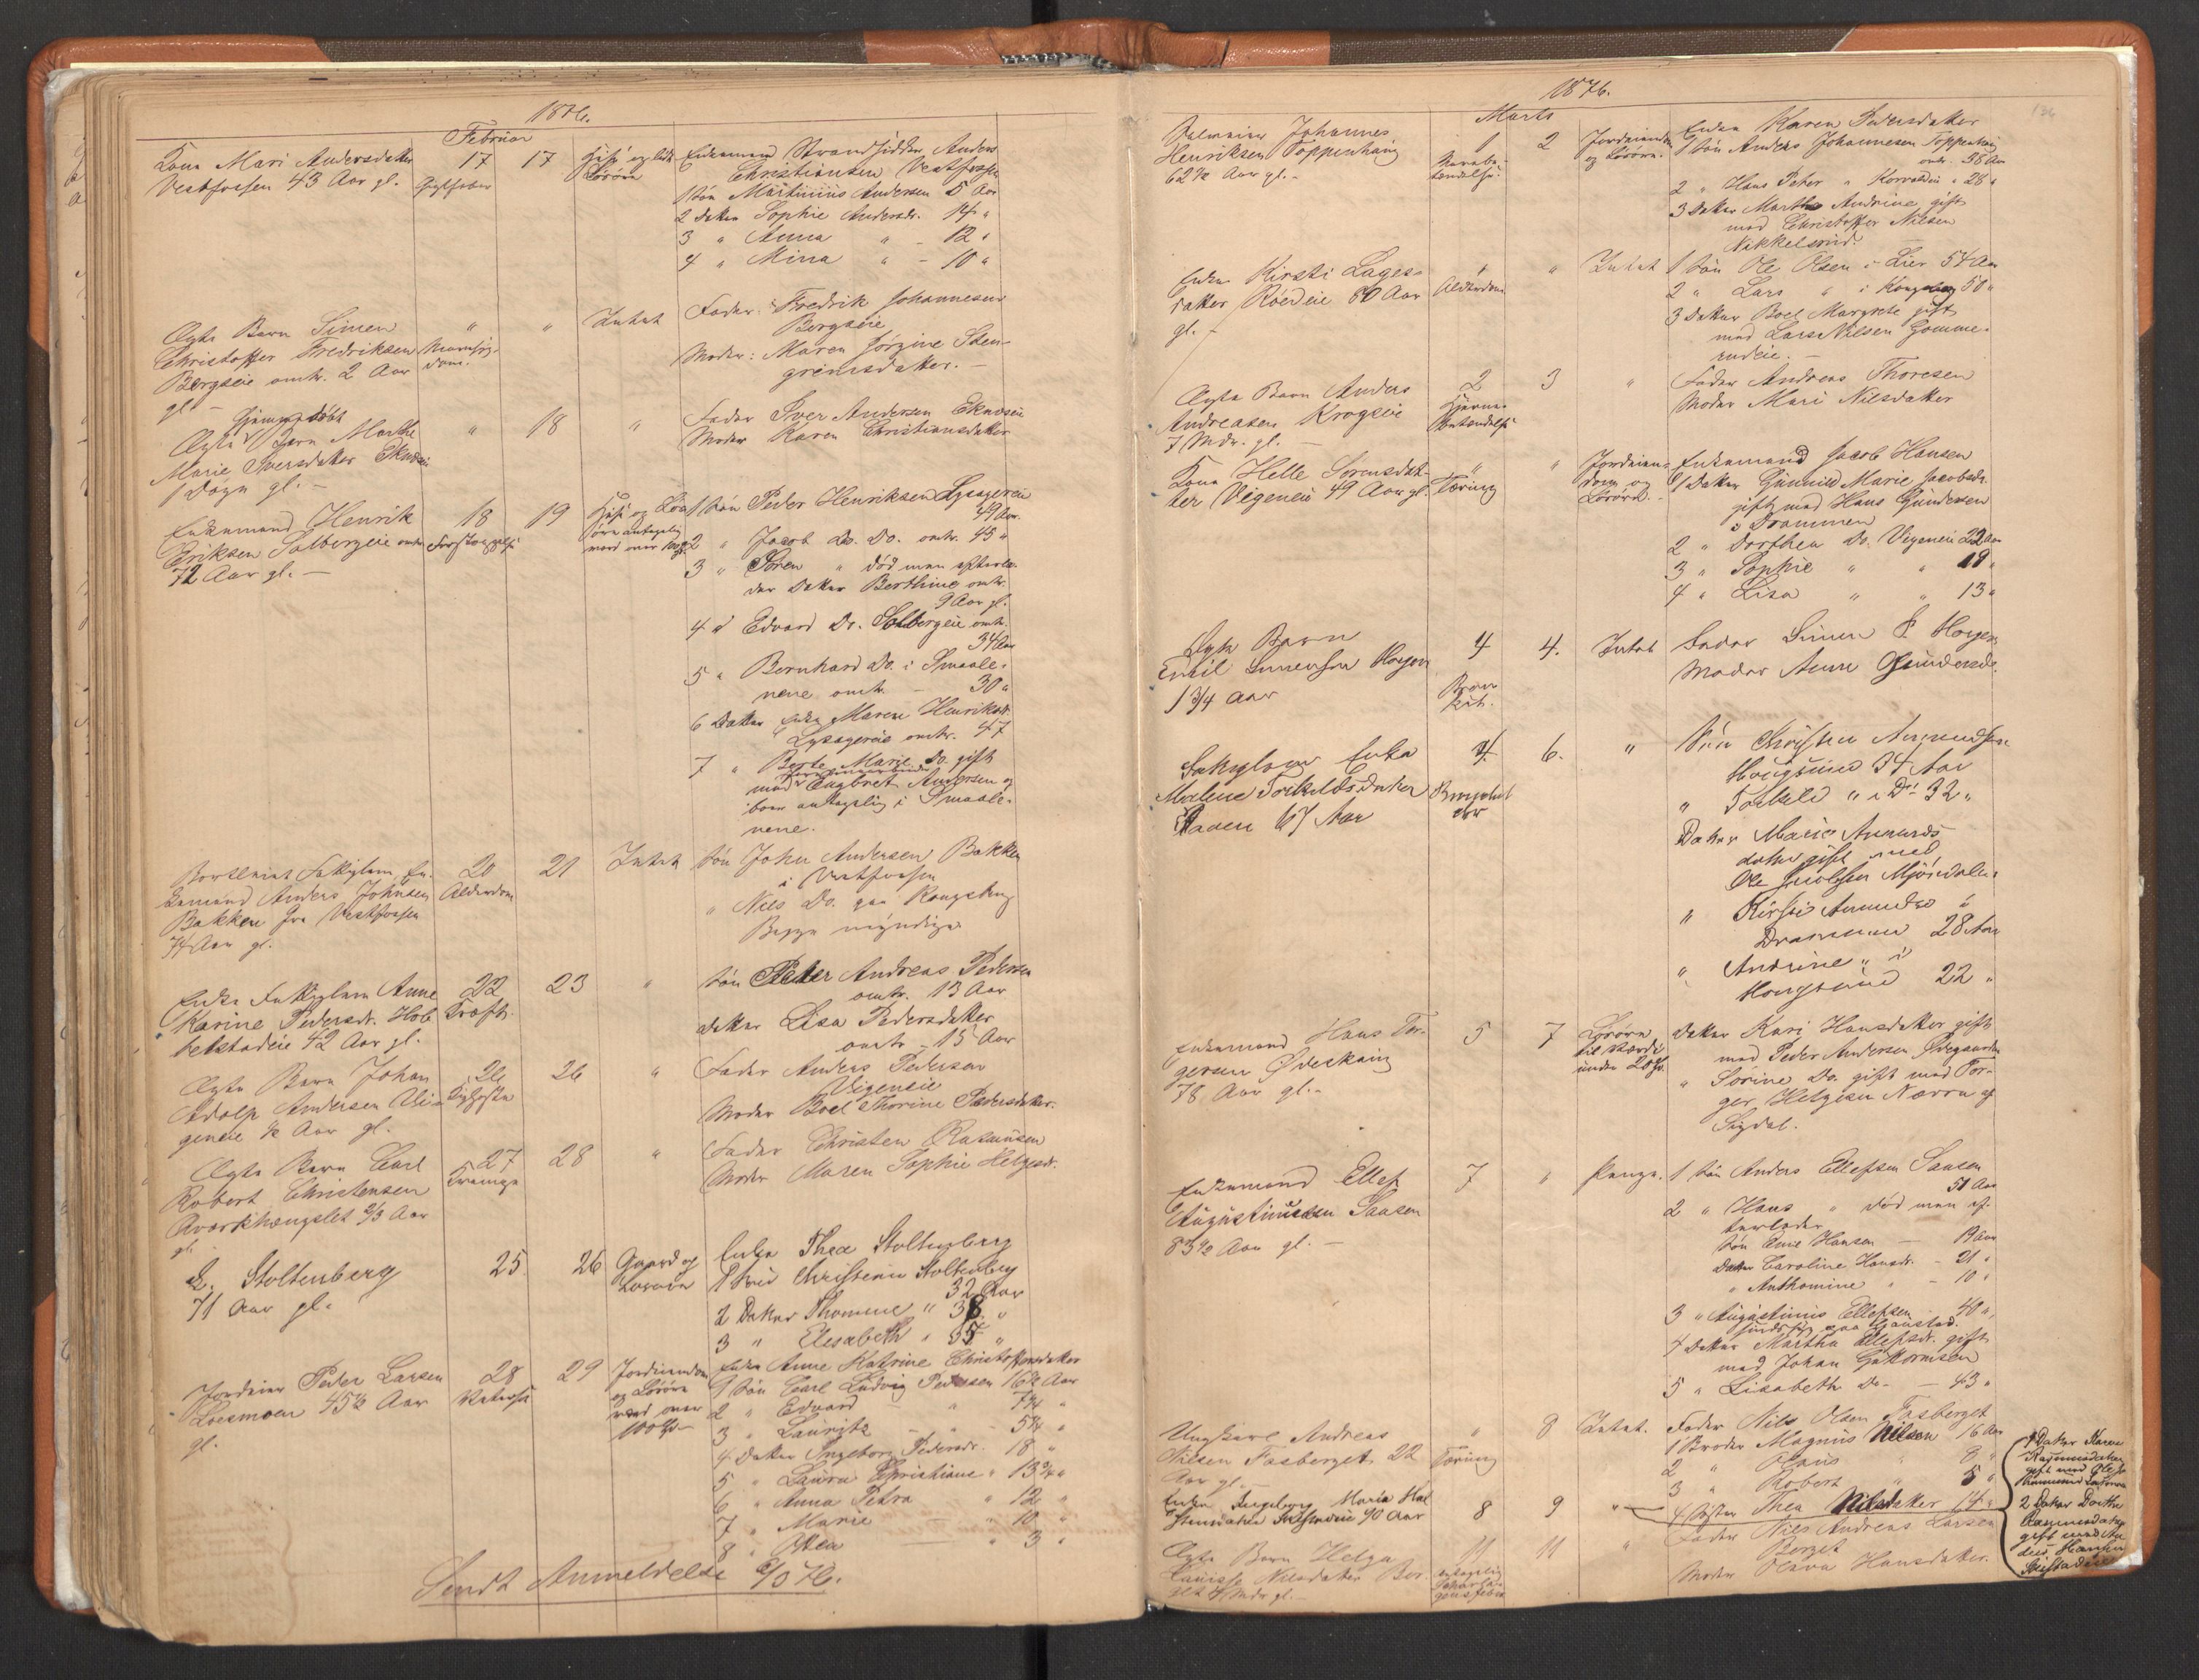 1876.
Februar
Kone Mari Andersdatter
Vestfossen 43 Aar gl.
17
17
Enkemand Strandsidder Anders
Christiansen Vestfossen
1 Søn Martinius Andersen 5 Aar
2 Datter Sophie Andersdr. 14 "
3 " Anna " - 12 "
4 " Mina " - 10 "
Ægte Barn Simen
Christoffer Fredriksen
Bergseie omtr. 2 Aar
gl. -
"
"
Intet
Fader: Fredrik Johannesen
Bergseie
Moder: Maren Jørgine Sten-
grimsdatter. -
Hjemmedøbt
Ægte Barn Marthe
Marie Iversdatter
1 Døgn gl. -
"
18
"
Fader Iver Andersen
Moder Karen Christiansdatter
Enkemand Henrik
Eriksen Solbergeie omtr.
72 Aar gl. -
18
19
Huus og Løs-
øre antagelig
1 Søn Peder Henriksen Lysagereie
49 Aar.
2 " Jacob Do. Do. omtr. 45 "
3 " Søren " død men efterla-
der Datter Berthine omtr.
9 Aar gl.
4 " Edvard Do. Solbergeie omtr.
34 Aar
5 " Bernhard Do. i Smaale-
nene omtr. - 30 "
6 Datter Enke Maren Henriksdr.
Lysagereie omtr. 47
7 " Berte Marie Do. gift
med Engbret Andersen og
boer antagelig i Smaale-
nene.
Fattiglem En-
kemand Anders Johnsen
Bakken fra Vestfossen
74 Aar gl.
20
Alderdom
21
Intet
Søn John Andersen Bakken
i Vestfossen
" Nils Do. paa Kongsberg
Begge myndige
Enke Fattiglem Anne
Karine Pedersdr. Hob-
belstadeie 42 Aar gl.
22
Kræft.
23
"
Søn Peder Andreas Pedersen
omtr. 13 Aar
Datter Lisa Pedersdatter
omtr. 15 Aar
Ægte Barn Johan
Adolf Andersen Vi-
geneie ½ Aar gl.
26
26
"
Fader Anders Pedersen
Vigeneie
Moder Boel Thorine Pedersdatter.
Ægte Barn Carl
Robert Christensen
2/3 Aar
gl.
27
Krampe
28
"
Fader Christen Rasmusen
Moder Maren Sophie Helgesdr.
Stoltenberg
71 Aar gl.
25
26
Gaard og
Løsøre
Enke Thea Stoltenberg
Christense Stoltenberg
32 Aar
2 Datter Thomine " 38 "
3 " Elisabeth " 35 "
Jordeier Peder Larsen
Loesmoen 45½ Aar
gl.
28
29
Jordeiendom
og Løsøre
værd over
100 Spd.
Enke Anne Katrine Christoffersdatter
1 Søn Carl Ludvig Pedersen 16½ Aar
2 " Edvard " 7¼ "
3 " Lauritz - " 5¼ "
4 Datter Ingeborg Pedersdr. 18 "
5 " Laura Christiane " 13¾ "
6 " Anna Petra " 12 "
7 " Marie - " 10 "
8 " - " 3 "
Sendt Anmeldelse 6/3 76.
1876.
Marts
Johannes
Henriksen Toppenhaug
62½ Aar gl. -
1
2
Jordeiendom
og Løsøre.
Enke Karen Pedersdatter
1 Søn Anders Johannesen Toppenhaug
omtr. 38 Aar
2 " Hans Peter " " 28 "
3 Datter Marthe Andrine gift
med Christoffer Nilsen
Enke Kirsti Lages-
datter Røedeie 80 Aar
gl. -
"
Alderdom
"
Intet
1 Søn Ole Olsen i Lier 54 Aar
2 " Lars " i Kongsberg 50 "
3 Datter Boel Margrete gift
med Lars Nilsen Gomme-
rudeie. -
Ægte Barn Anders
Andreasen Krogseie
7 Mdr. gl. -
2
Hjerne-
betændelse
3
"
Fader Andreas Thoresen
Moder Mari Nilsdatter
Kone Helle Sørensdat-
ter Vigeneie 49 Aar gl.
"
Tæring
"
Jordeien-
dom og
Løsøre. -
Enkemand Jacob Hansen
1 Datter Gunnild Marie Jacobsdr.
gift med Hans Gundersen
i Drammen
2 " Dorthea Do. Vigeneie 22 Aar
3 " Sophie " " 18 "
4 " Lisa " " 13 "
Ægte Barn
Emil Simensen Horgen
1¾ Aar
4
Bron-
kit.
4.
Intet
Fader Simen P. Horgen
Moder Anne Gundersdr.
Fattiglem Enke
Malene Torkildsdatter
Haaen 67 Aar
4.
6.
"
Søn Christen Amundsen
Hougsund 34 Aar
" Torkild " i Do. 32 "
Datter Marie Amunds-
datter gift med
Ole Jacobsen Mjøndalen
" Kirsti Amundsd. i
Drammen 28 Aar
" Andrine " i
Hougsund 22 "
Enkemand Hans Tor-
gersen Ødeshaug
78 Aar gl. -
5
7
Løsøre
til Værdi
under 20 Spd.
Datter Kari Hansdatter gift
med Peder Andersen Ødegaarden
" Sørine Do. gift med Tor-
ger Helgesen Nærra af
Sigdal.
Enkemand Ellef
Augustinussen Saasen
83½ Aar gl. -
7
"
Penge.
1 Søn Anders Ellefsen Saasen
51 Aar
2 " Hans " død men ef-
terlader
Søn Emil Hansen - 19 Aar
Datter Caroline Hansdr. - 21 "
" Anthomine " - 10 "
3 " Augustinus Ellefsen - 40 "
findes sig paa Gaustad.
4 Datter Martha Ellefsdr. gift
med Johan Guttormsen
5 " Lisabeth Do. - - 43 "
Ungkarl Andreas
Nilsen Fasberget 22
Aar gl. -
"
Tæring
8
Intet.
Fader Nils Olsen Fasberget
1 Broder Magnus Nilsen 16 Aar
2 " Olaus " 8 "
3 " Robert " 5 "
4 Søster Thea Nilsdatter 14 "
Enke Ingeborg Maria Hal-
90 Aar
8
9
"
1 Datter Karen
Rasmusdatter
gift med Ole
2 Datter Dorthe
Rasmusdatter
gift med An-
ders Hansen
Ægte Barn Helga
Lauise Nilsdatter Ber-
get 4 Mdr. gl. -
11
antagelig
11
"
Fader Nils Andreas Larsen
Berget
Moder Olava Hansdatter.